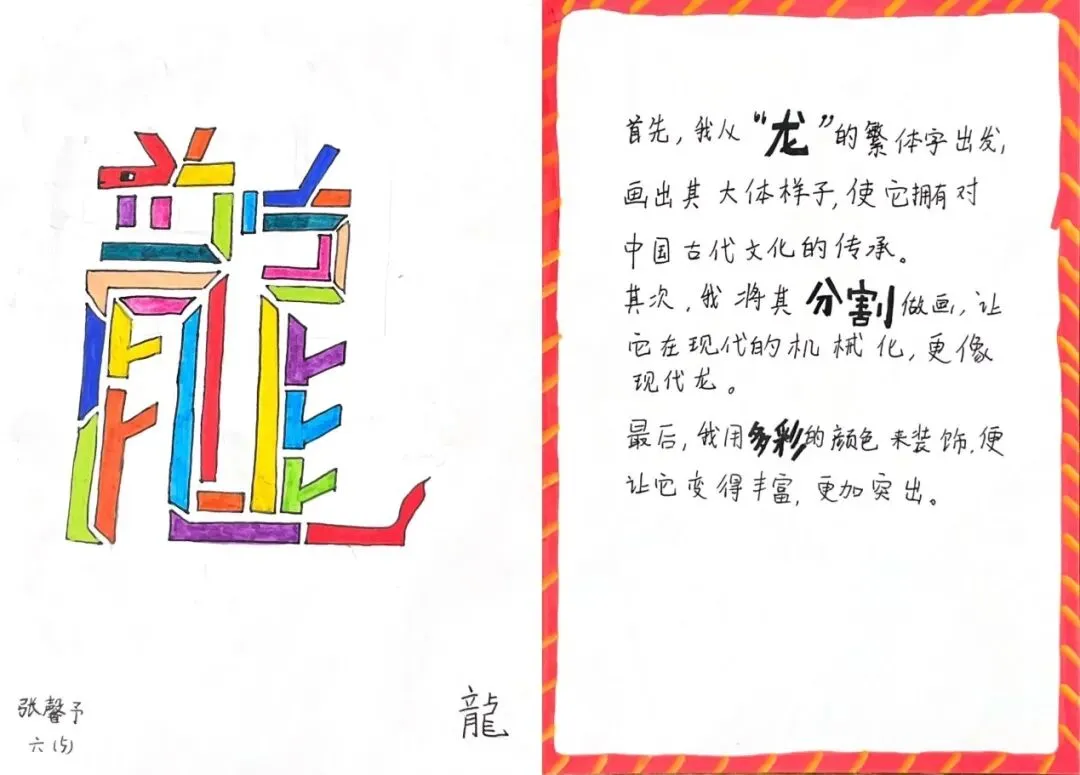 張馨予
六(5)
龍
首先,我从“龙”的繁体字出发,
画出其大体样子,使它拥有对
中国古代文化的传承。
其次,我将其分割做画,让
它在现代的机械化,更像
现代龙。
最后,我用多彩的颜色来装饰,便
让它变得丰富,更加突出。